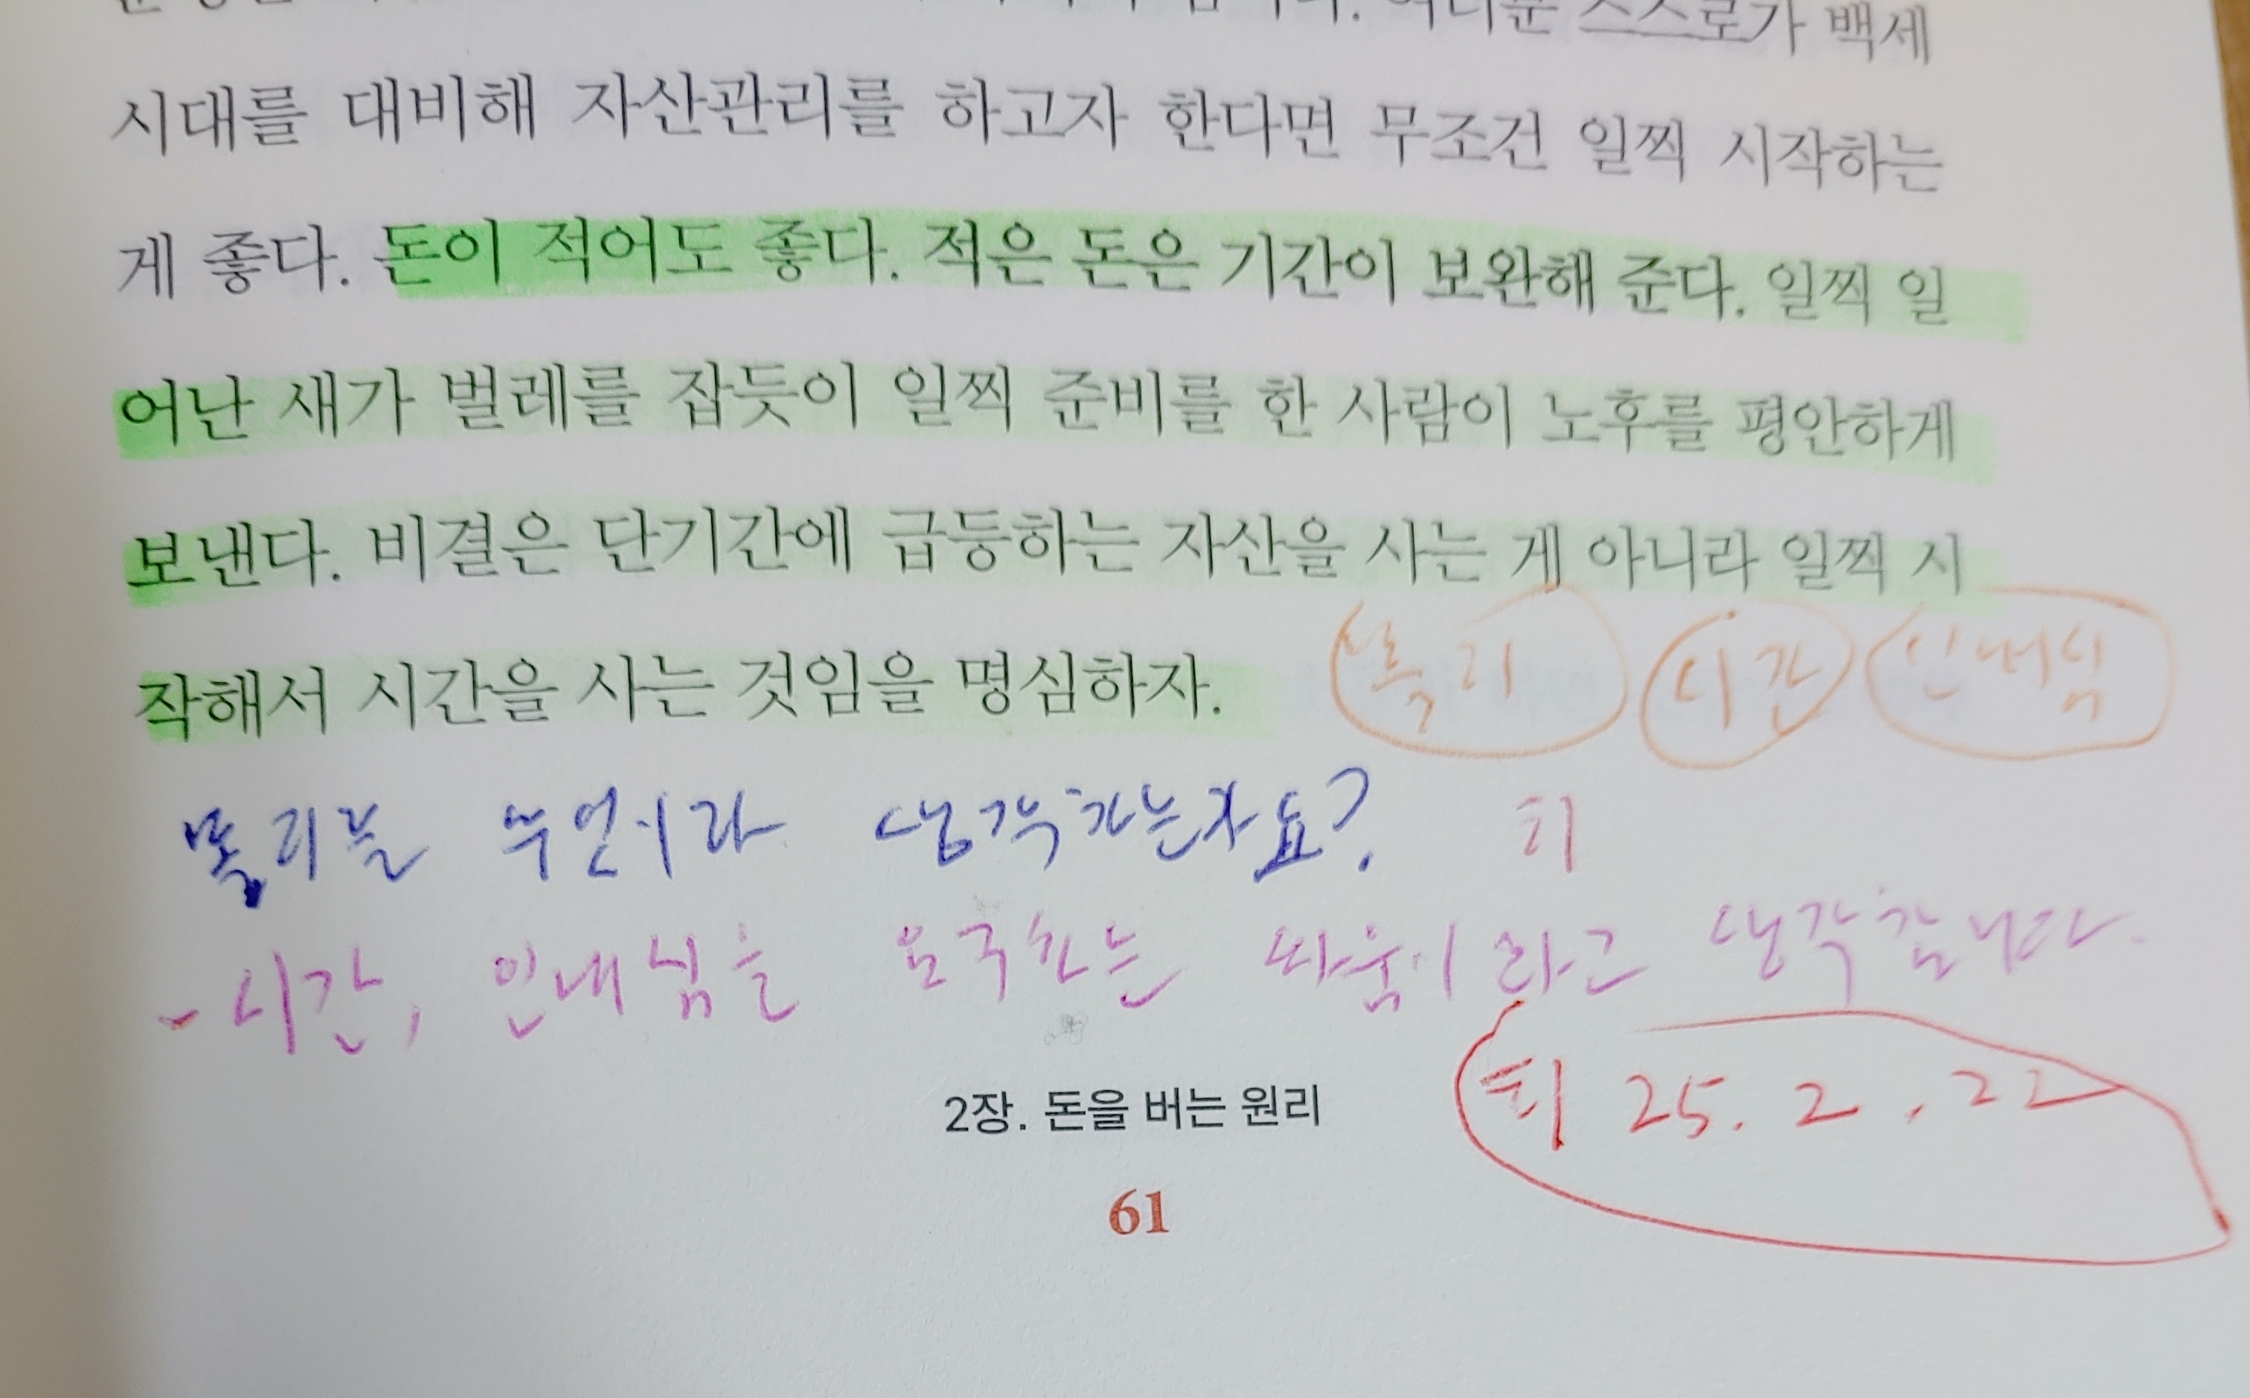 스스로가 백세
시대를 대비해 자산관리를 하고자 한다면 무조건 일찍 시작하는
게 좋다. 돈이 적어도 좋다. 적은 돈은 기간이 보완해 준다. 일찍 일
어난 새가 벌레를 잡듯이 일찍 준비를 한 사람이 노후를 평안하게
보낸다. 비결은 단기간에 급등하는 자산을 사는 게 아니라 일찍 시
작해서 시간을 사는 것임을 명심하자.
복리 시간 인내심
복리를 무엇이라 생각하는지요?
- 시간, 인내심을 요구하는 싸움이라고 생각합니다.
25. 2. 22
2장. 돈을 버는 원리
61